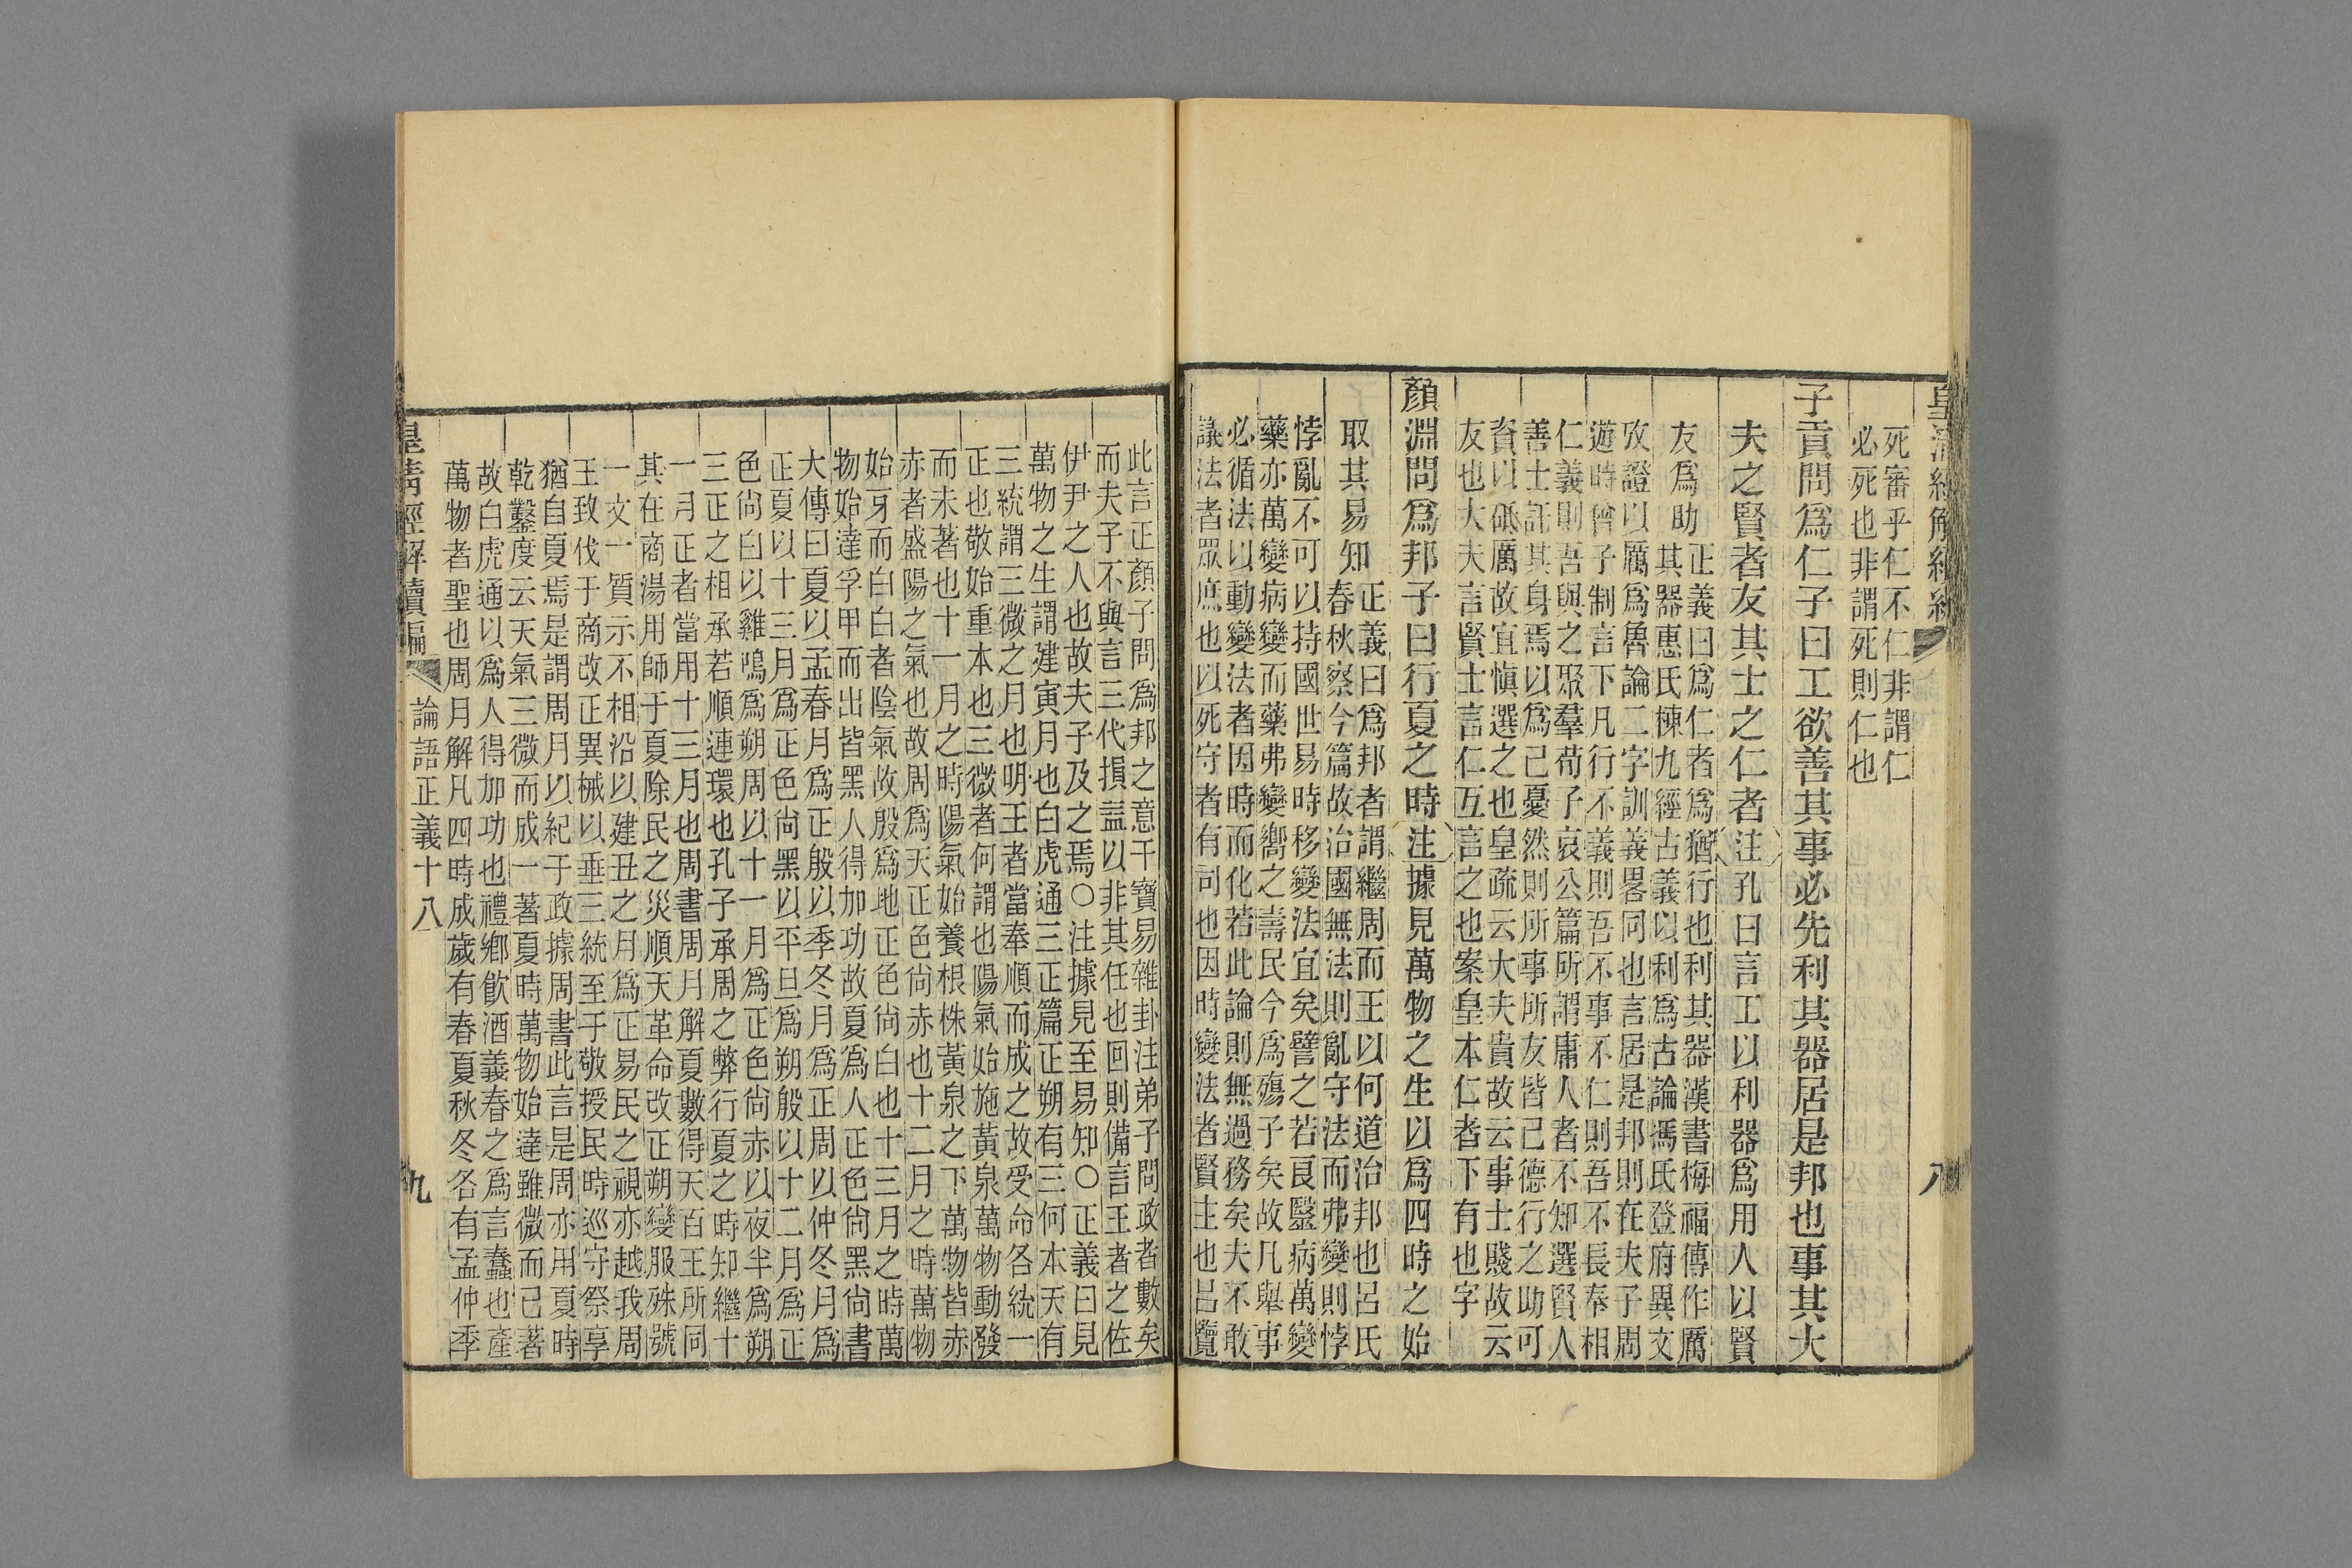 皇清經解續編
八
死審乎仁不仁非謂仁
必死也非謂死則仁也
子貢問爲仁子曰工欲善其事必先利其器居是邦也事其大
夫之賢者友其士之仁者注孔曰言工以利器爲用人以賢
友爲助
正義曰爲仁者爲猶行也利其器漢書梅福傳作厲
其器惠氏棟九經古義以利爲古論馮氏登府異文
攷證以厲爲魯論二字訓義畧同也言居是邦則在夫子周
遊時曾子制言下凡行不義則吾不事不仁則吾不長奉相
仁義則吾與之聚羣荀子哀公篇所謂庸人者不知選賢人
善士託其身焉以爲己憂然則所事所友皆己德行之助可
資以砥厲故宜愼選之也皇疏云大夫貴故云事士賤故云
友也大夫言賢士言仁互言之也案皇本仁者下有也字
顏淵問爲邦子曰行夏之時注據見萬物之生以爲四時之始
取其易知
正義曰爲邦者謂繼周而王以何道治邦也呂氏
春秋察今篇故治國無法則亂守法而弗變則悖
悖亂不可以持國世易時移變法宜矣譬之若良毉病萬變
藥亦萬變病變而藥弗變嚮之壽民今爲殤子矣故凡舉事
必循法以動變法者因時而化若此論則無過務矣夫不敢
議法者眾庶也以死守者有司也因時變法者賢主也呂覽
此言正顏子問爲邦之意干寶易雜卦注弟子問政者數矣
而夫子不與言三代損益以非其任也回則備言王者之佐
伊尹之人也故夫子及之焉○注據見至易知○正義曰見
萬物之生謂建寅月也白虎通三正篇正朔有三何本天有
三統謂三微之月也明王者當奉順而成之故受命各統一
正也敬始重本也三微者何謂也陽氣始施黃泉萬物動發
而未著也十一月之時陽氣始養根株黃泉之下萬物皆赤
赤者盛陽之氣也故周爲天正色尙赤也十二月之時萬物
始牙而白白者陰氣故殷爲地正色尙白也十三月之時萬
物始達孚甲而出皆黑人得加功故夏爲人正色尙黑尙書
大傳曰夏以孟春月爲正殷以季冬月爲正周以仲冬月爲
正夏以十三月爲正色尙黑以平旦爲朔殷以十二月爲正
色尙白以雞鳴爲朔周以十一月爲正色尙赤以夜半爲朔
三正之相承若順連環也孔子承周之弊行夏之時知繼十
一月正者當用十三月也周書周月解夏數得天百王所同
其在商湯用師于夏除民之災順天革命改正朔變服殊號
一文一質示不相沿以建丑之月爲正易民之視亦越我周
王致伐于商改正異械以垂三統至于敬授民時巡守祭享
猶自夏焉是謂周月以紀于政據周書此言是周亦用夏時
乾鑿度云天氣三微而成一著夏時萬物始達雖微而已著
故白虎通以爲人得加功也禮鄉飮酒義春之爲言蠢也產
萬物者聖也周月解凡四時成歲有春夏秋冬各有孟仲季
皇清經解續編
論語正義十八
九